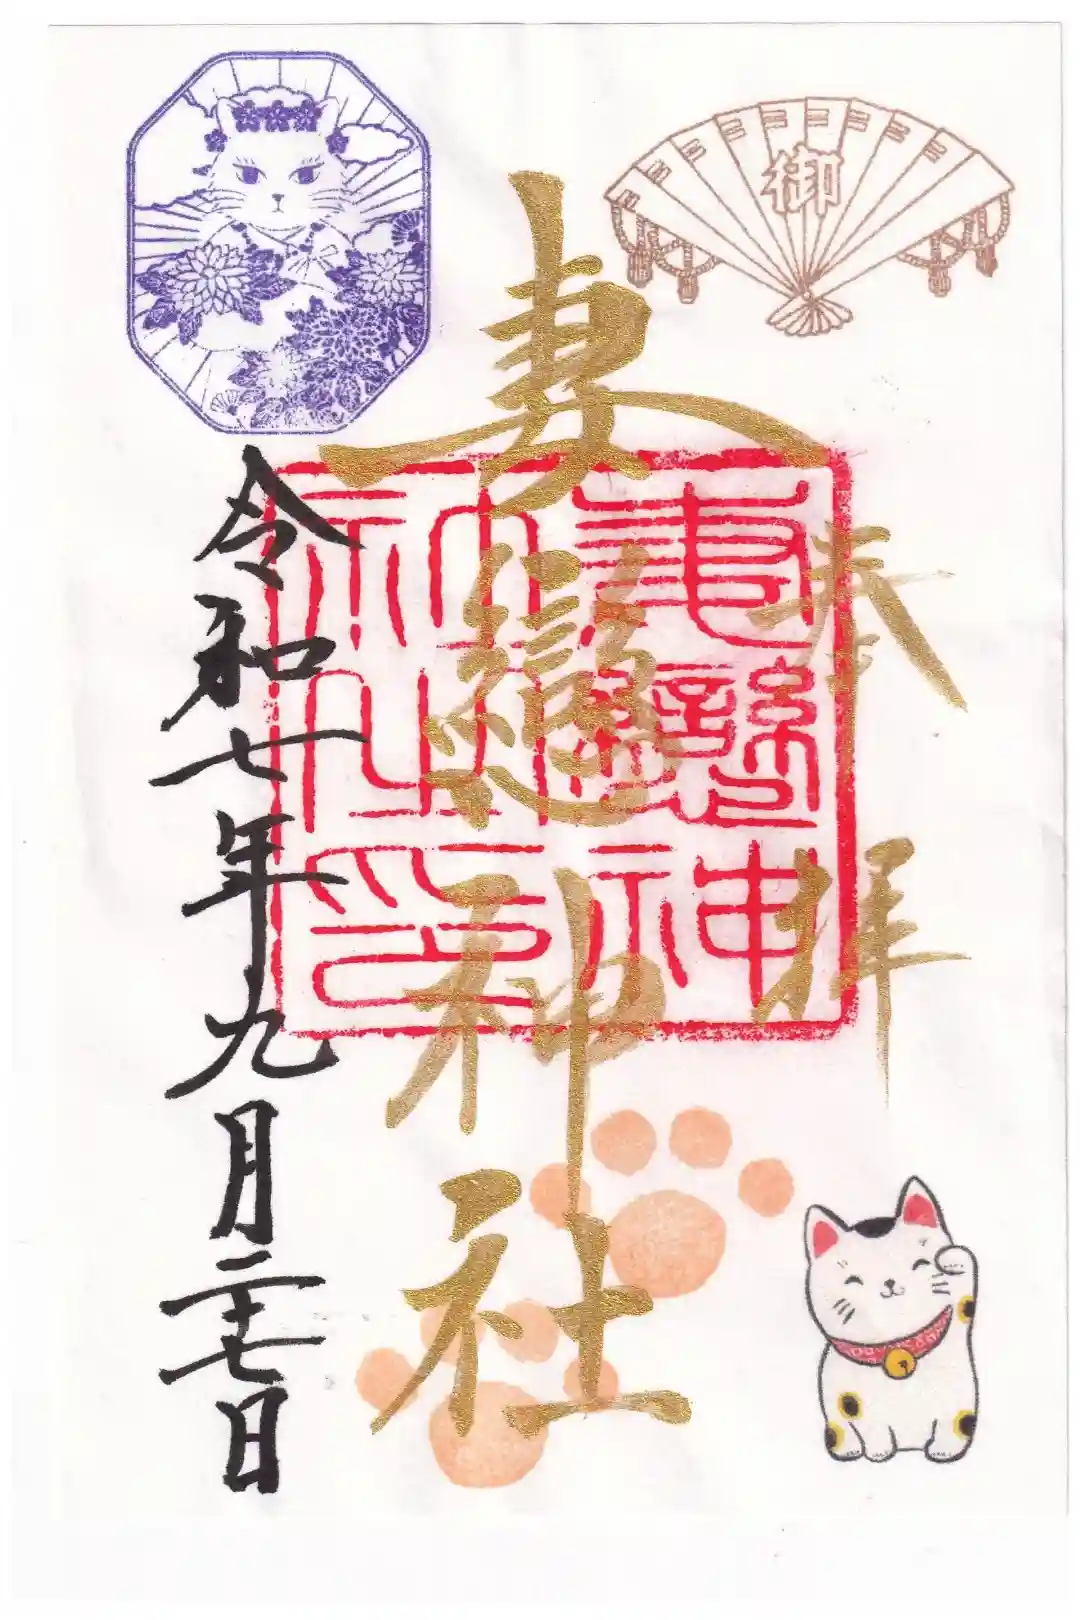 御
奉拝
妻戀神社
妻戀神社之印
令和七年九月二十七日